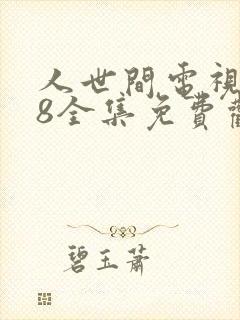 人世間電視
8全集免費
碧玉蕭